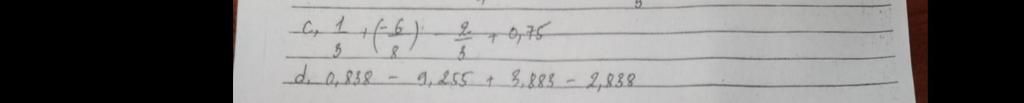 c, 1/3 + (-6/8) - 2/3 + 0,75
d. 0,838 - 9,255 + 3,883 - 2,838